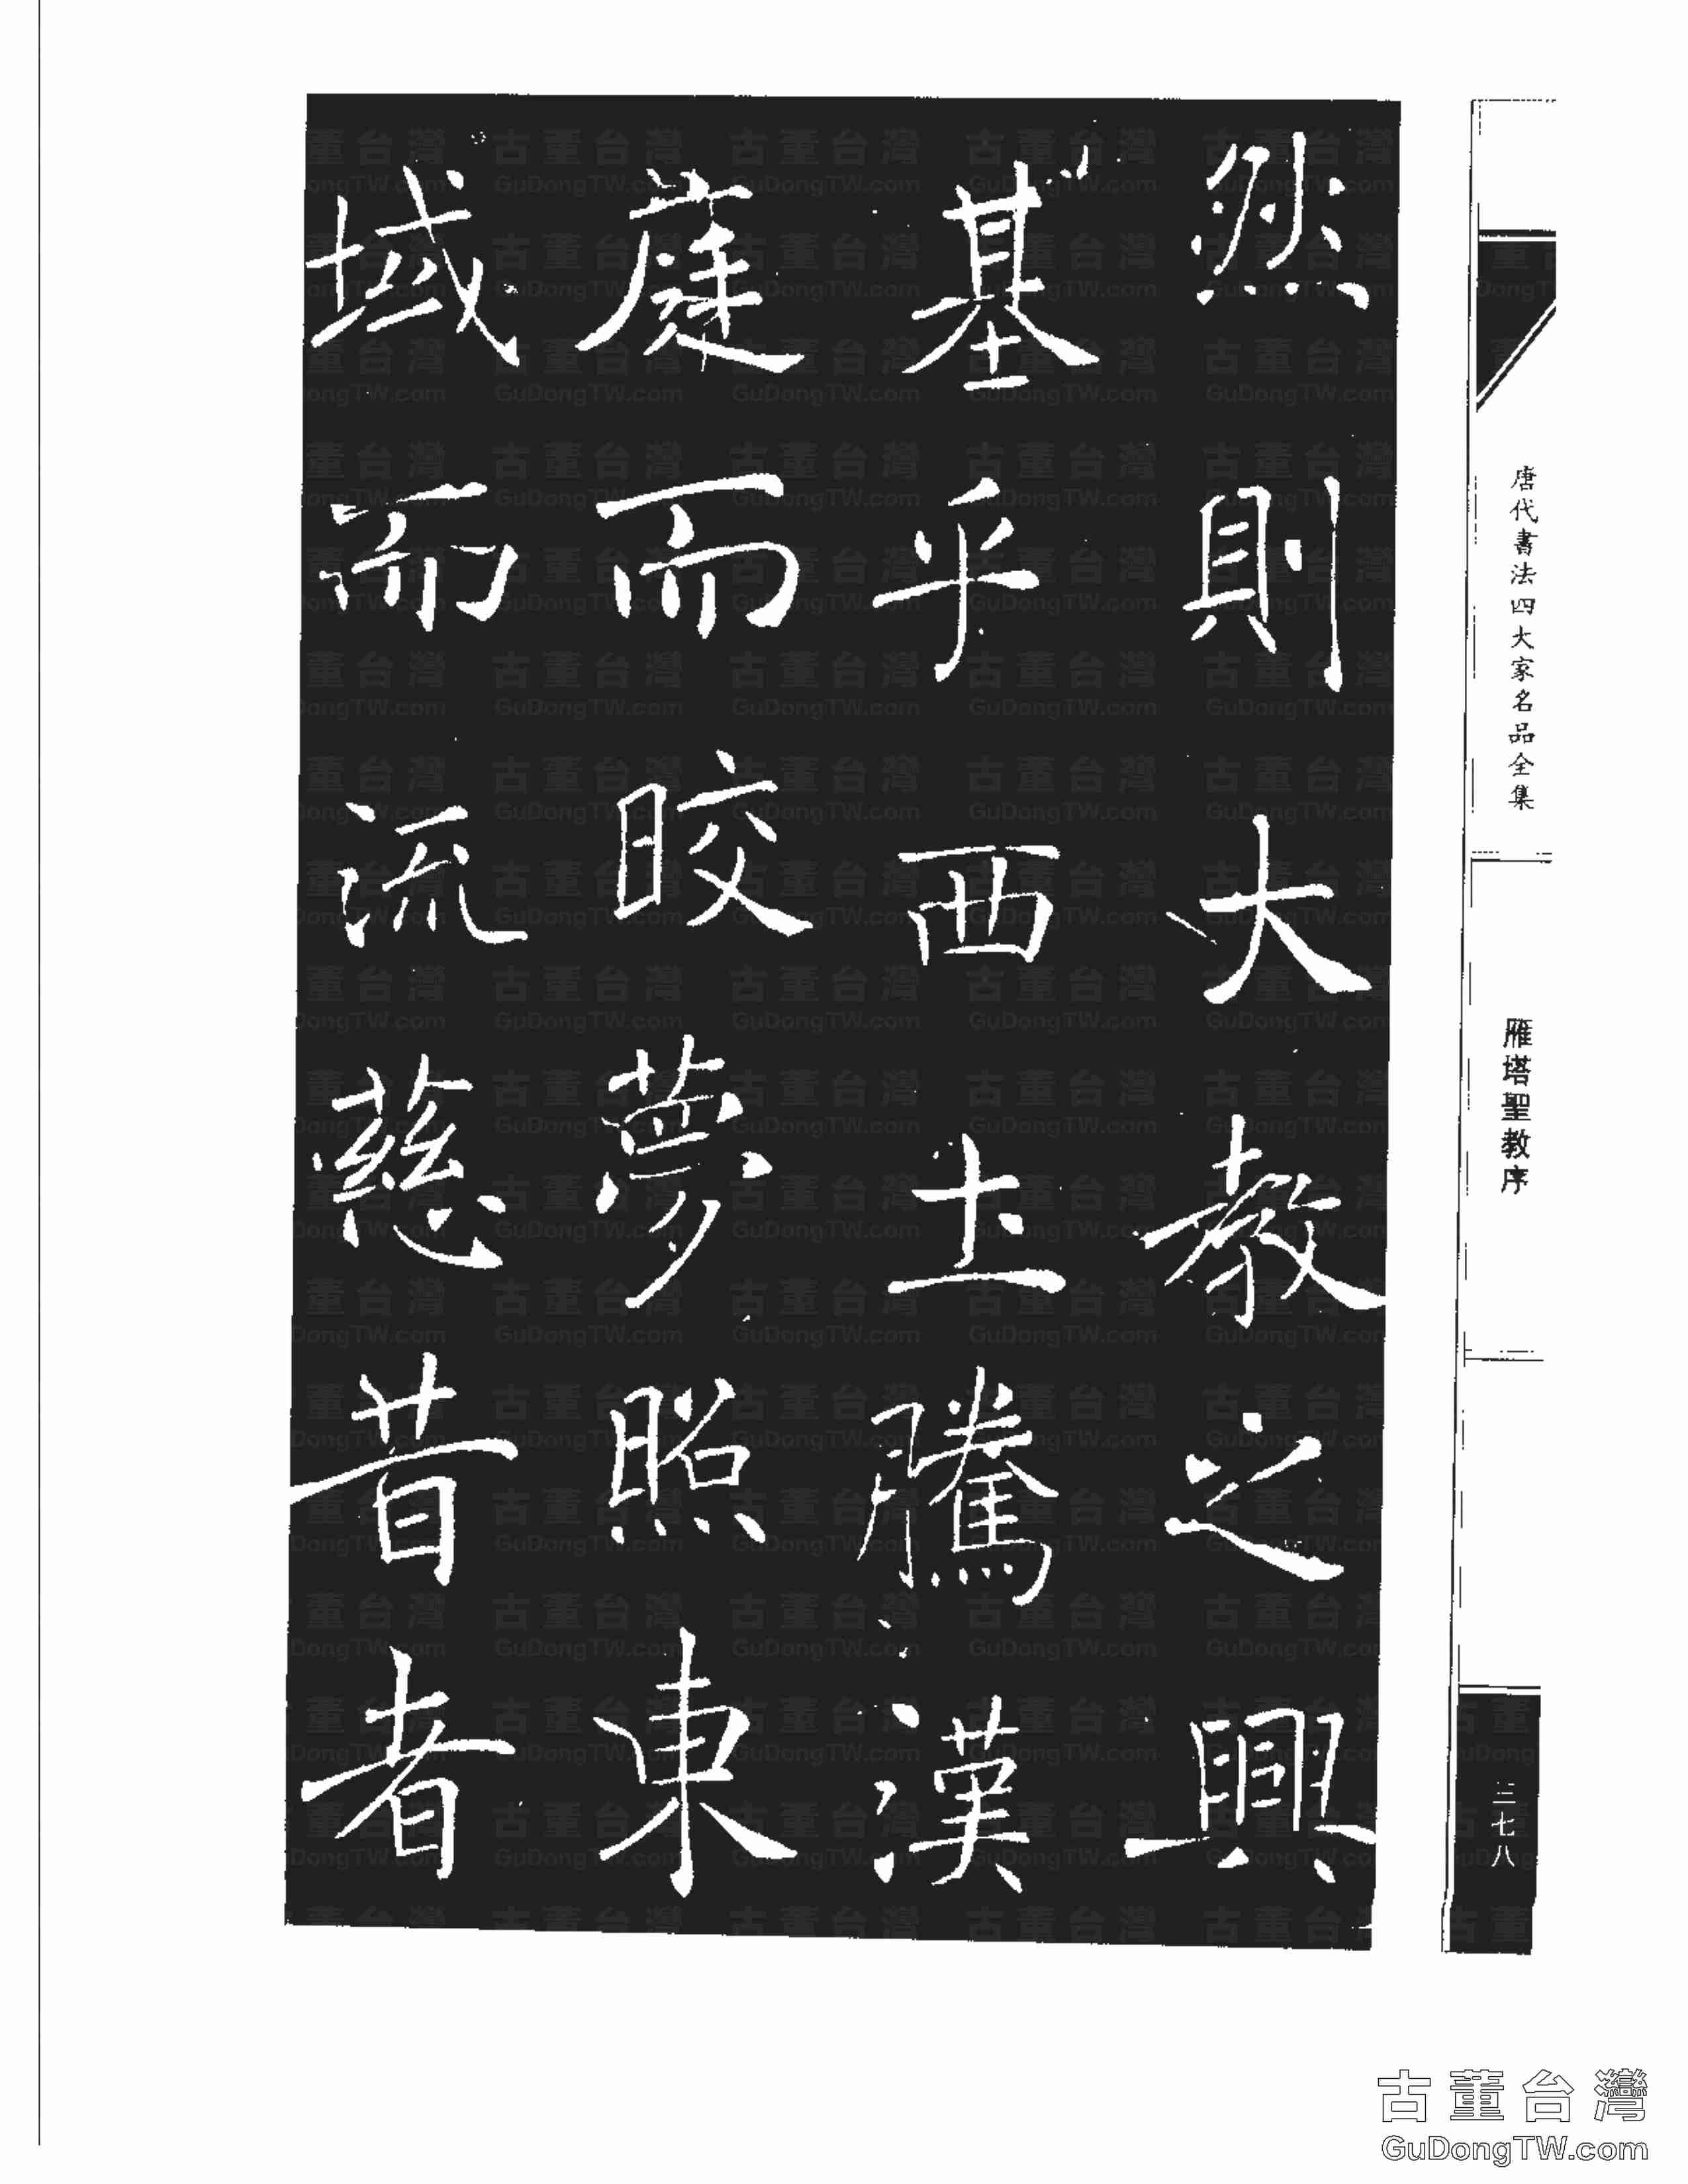 然則大教之興
基乎西土騰漢
庭而晈夢照東
域而流慈昔者
唐代書法四大家名品全集
雁塔聖教序
三七八
古董台灣
GuDongTW.com